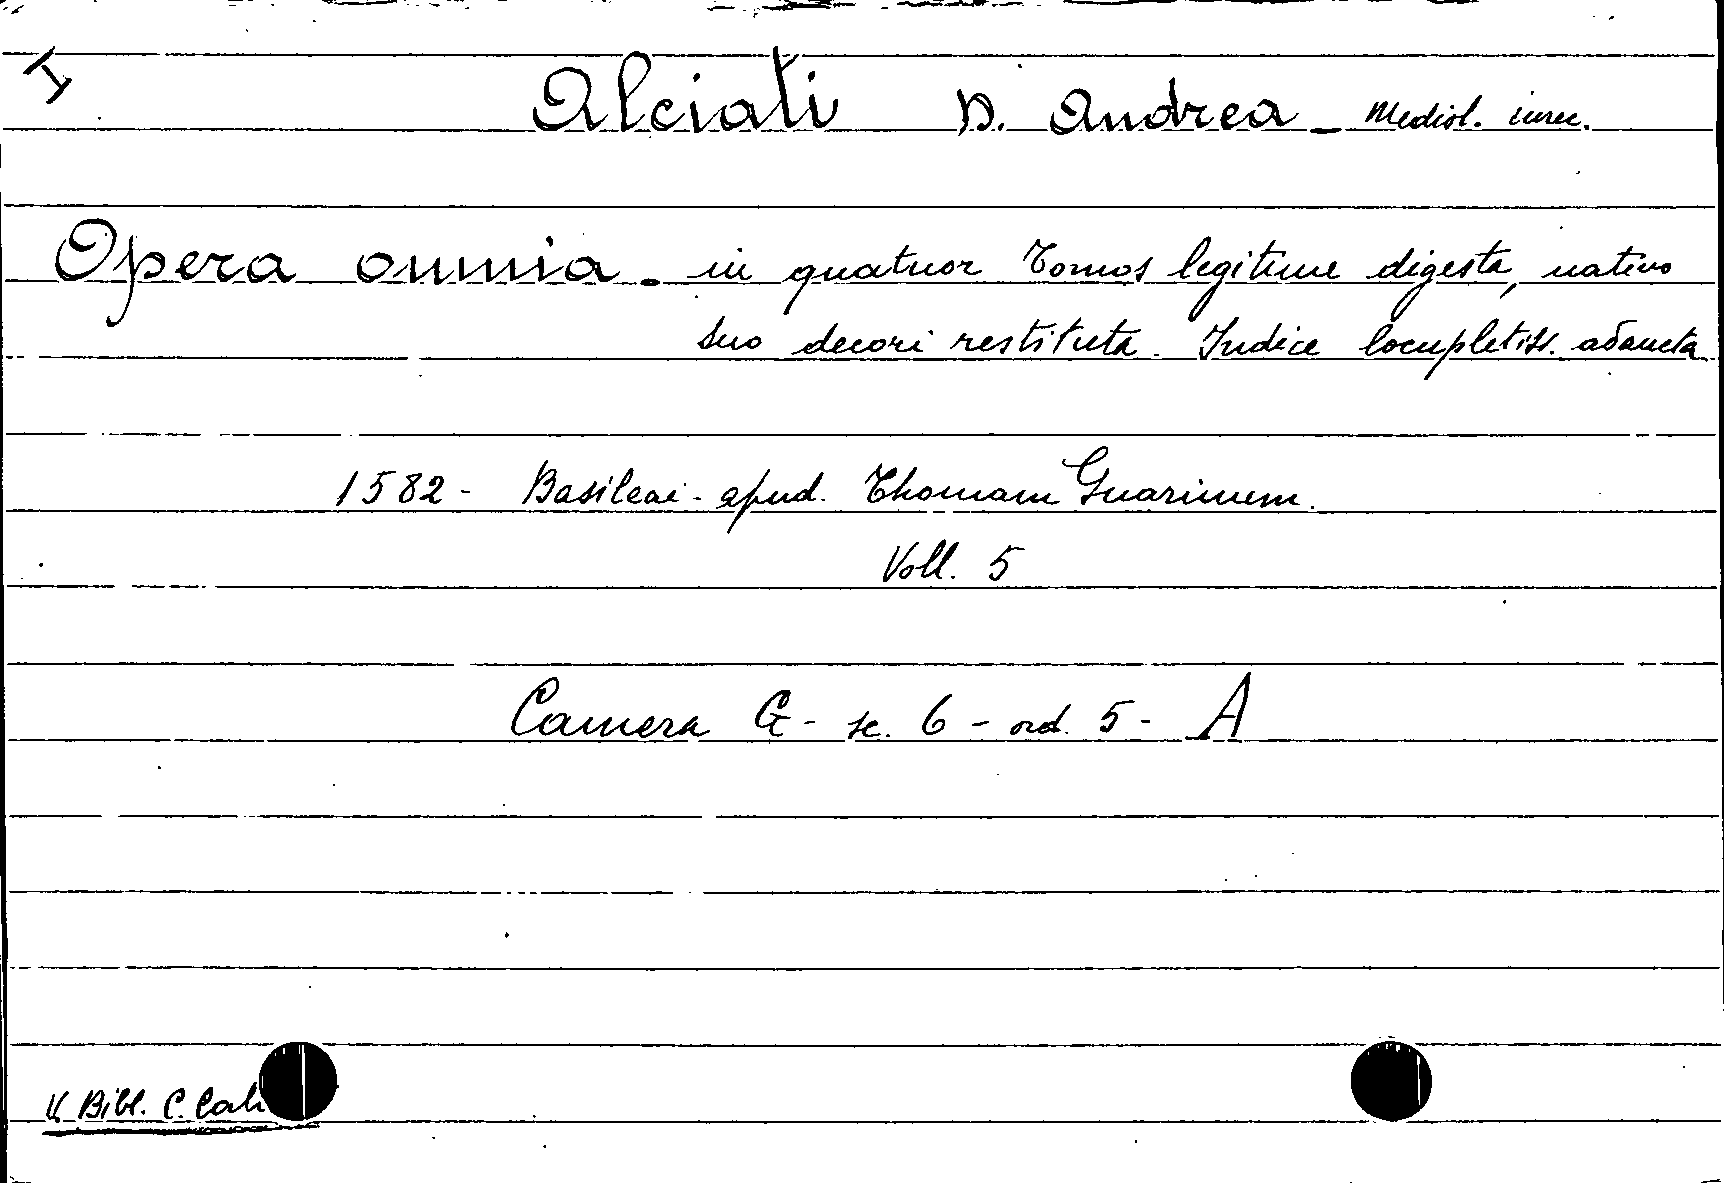 I
Alciati D. Andrea - Mediol. iurec.
Opera omnia - in quatuor Tomos legitime digesta, nativo
suo decori restituta. Indice locupletiss. adaucta
1582 - Basileae - apud. Thomam Guarinum.
Voll. 5
Camera G - sc. 6 - ord. 5 - A
Bibl. C.